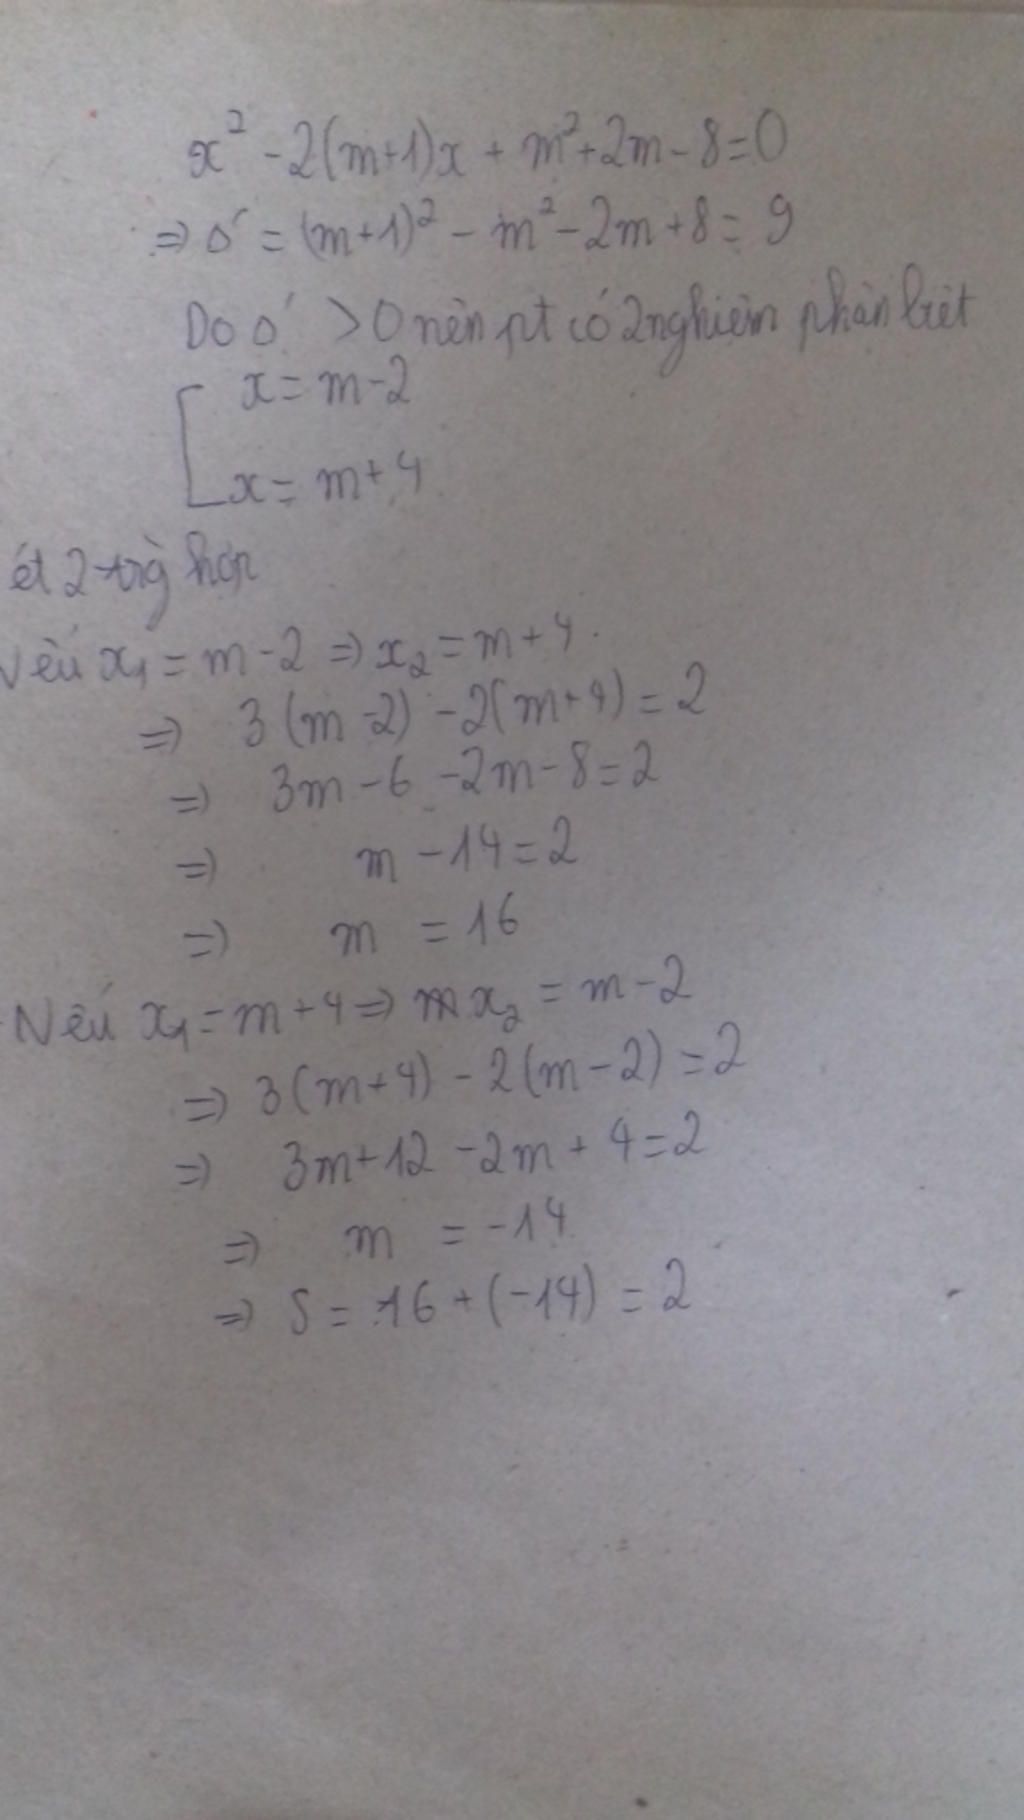 x² - 2(m+1)x + m² + 2m - 8 = 0
=> Δ' = (m+1)² - m² - 2m + 8 = 9
Do Δ' > 0 nên pt có 2 nghiệm phân biệt
[ x = m - 2
x = m + 4
ét 2 trg hợp
Nếu x₁ = m - 2 => x₂ = m + 4.
=> 3(m - 2) - 2(m + 4) = 2
=> 3m - 6 - 2m - 8 = 2
=> m - 14 = 2
=> m = 16
Nếu x₁ = m + 4 => x₂ = m - 2
=> 3(m + 4) - 2(m - 2) = 2
=> 3m + 12 - 2m + 4 = 2
=> m = -14
=> S = 16 + (-14) = 2